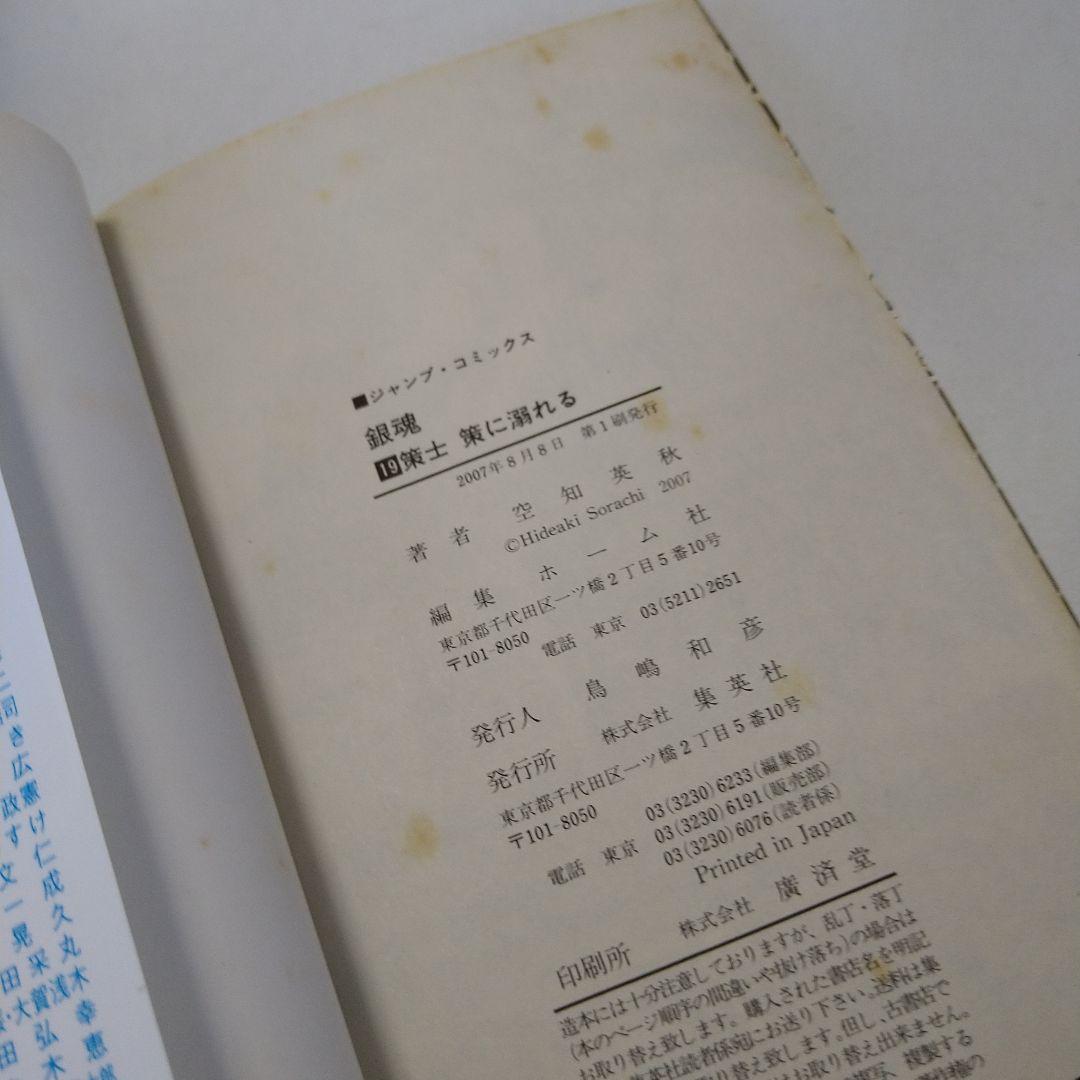 ■ジャンプ・コミックス
銀魂
19策士 策に溺れる
2007年8月8日 第1刷発行
著者 空知英秋
©Hideaki Sorachi 2007
編集 ホーム社
東京都千代田区一ツ橋2丁目5番10号
〒101-8050 電話 東京 03(5211)2651
発行人 鳥嶋和彦
発行所 株式会社 集英社
東京都千代田区一ツ橋2丁目5番10号
〒101-8050
03(3230)6233(編集部)
電話 東京 03(3230)6191(販売部)
03(3230)6076(読者係)
Printed in Japan
印刷所 株式会社 廣済堂
造本には十分注意しておりますが、乱丁・落丁
(本のページ順序の間違いや抜け落ち)の場合は
お取り替え致します。購入された書店名を明記
集英社読者係宛にお送り下さい。送料は集
取り替え致します。但し、古書店で
はお取り替え出来ません。
写、複製する